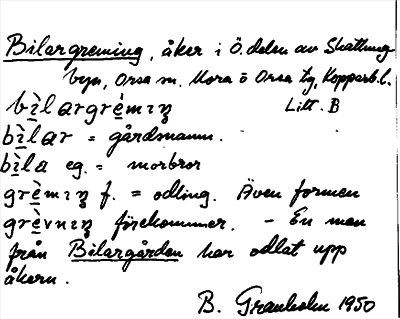 Bilargreming, åker i Ö. delen av Skattunge
byn, Orsa sn. Mora o Orsa tg, Kopparb. l.
bìlargrèmıŋ Litt. B
bìlar = gårdsnamn.
bìla eg. = morbror
grèmıŋ f. = odling. Även formen
grèvnıŋ förekommer. – En man
från Bilargården har odlat upp
åkern.
B. Granholm 1950